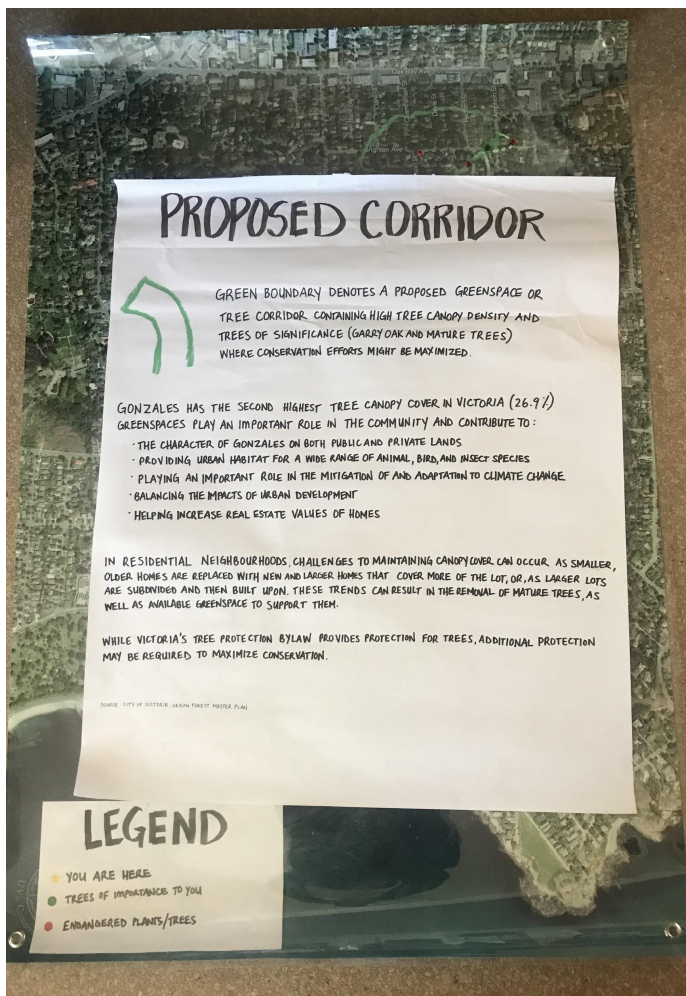 Oak Bay Ave
Brighton Ave
PROPOSED CORRIDOR
GREEN BOUNDARY DENOTES A PROPOSED GREENSPACE OR
TREE CORRIDOR CONTAINING HIGH TREE CANOPY DENSITY AND
TREES OF SIGNIFICANCE (GARRY OAK AND MATURE TREES)
WHERE CONSERVATION EFFORTS MIGHT BE MAXIMIZED.
GONZALES HAS THE SECOND HIGHEST TREE CANOPY COVER IN VICTORIA (26.9%)
GREENSPACES PLAY AN IMPORTANT ROLE IN THE COMMUNITY AND CONTRIBUTE TO:
· THE CHARACTER OF GONZALES ON BOTH PUBLIC AND PRIVATE LANDS
· PROVIDING URBAN HABITAT FOR A WIDE RANGE OF ANIMAL, BIRD, AND INSECT SPECIES
· PLAYING AN IMPORTANT ROLE IN THE MITIGATION OF AND ADAPTATION TO CLIMATE CHANGE
· BALANCING THE IMPACTS OF URBAN DEVELOPMENT
· HELPING INCREASE REAL ESTATE VALUES OF HOMES
IN RESIDENTIAL NEIGHBOURHOODS, CHALLENGES TO MAINTAINING CANOPY COVER CAN OCCUR AS SMALLER,
OLDER HOMES ARE REPLACED WITH NEW AND LARGER HOMES THAT COVER MORE OF THE LOT, OR, AS LARGER LOTS
ARE SUBDIVIDED AND THEN BUILT UPON. THESE TRENDS CAN RESULT IN THE REMOVAL OF MATURE TREES, AS
WELL AS AVAILABLE GREENSPACE TO SUPPORT THEM.
WHILE VICTORIA'S TREE PROTECTION BYLAW PROVIDES PROTECTION FOR TREES, ADDITIONAL PROTECTION
MAY BE REQUIRED TO MAXIMIZE CONSERVATION.
SOURCE: CITY OF VICTORIA, URBAN FOREST MASTER PLAN
LEGEND
YOU ARE HERE
TREES OF IMPORTANCE TO YOU
ENDANGERED PLANTS/TREES